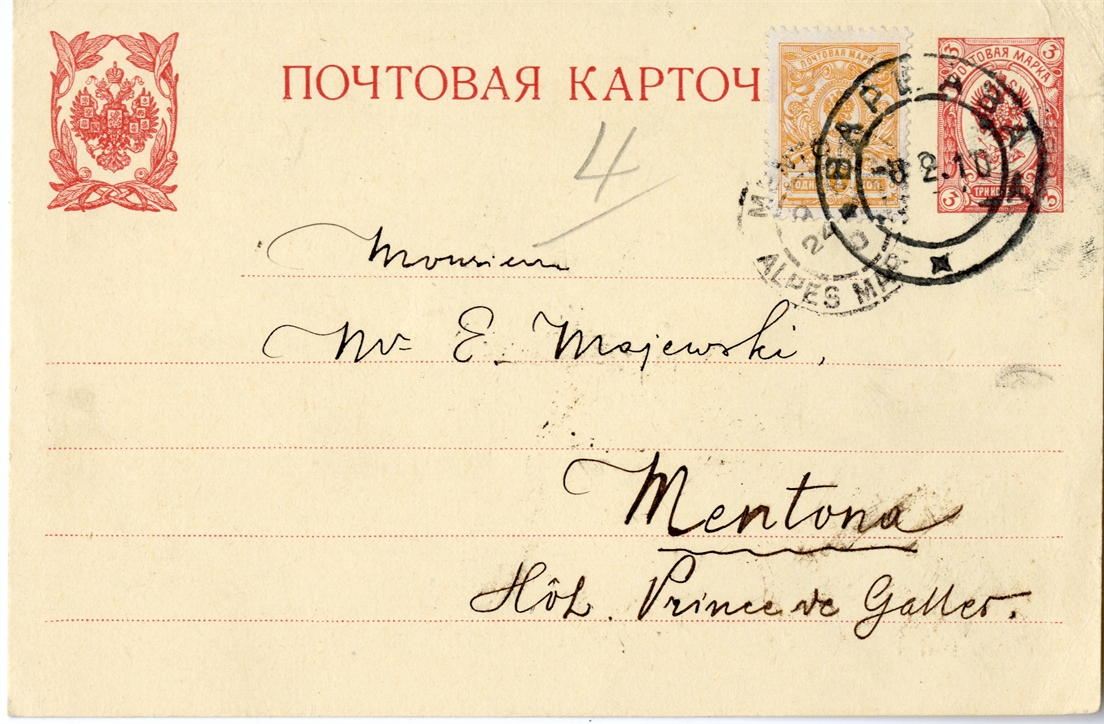 ПОЧТОВАЯ КАРТОЧ
ПОЧТОВАЯ МАРКА
3 3
ПОЧТОВАЯ МАРКА
ВАРШАВА
8 2.10
ОДНА КОП.
3 ТРИ КОП. 3
4
24
ALPES MAR
Monsieur
Mr E. Majewski,
Mentona
Hôt. Prince de Galles.